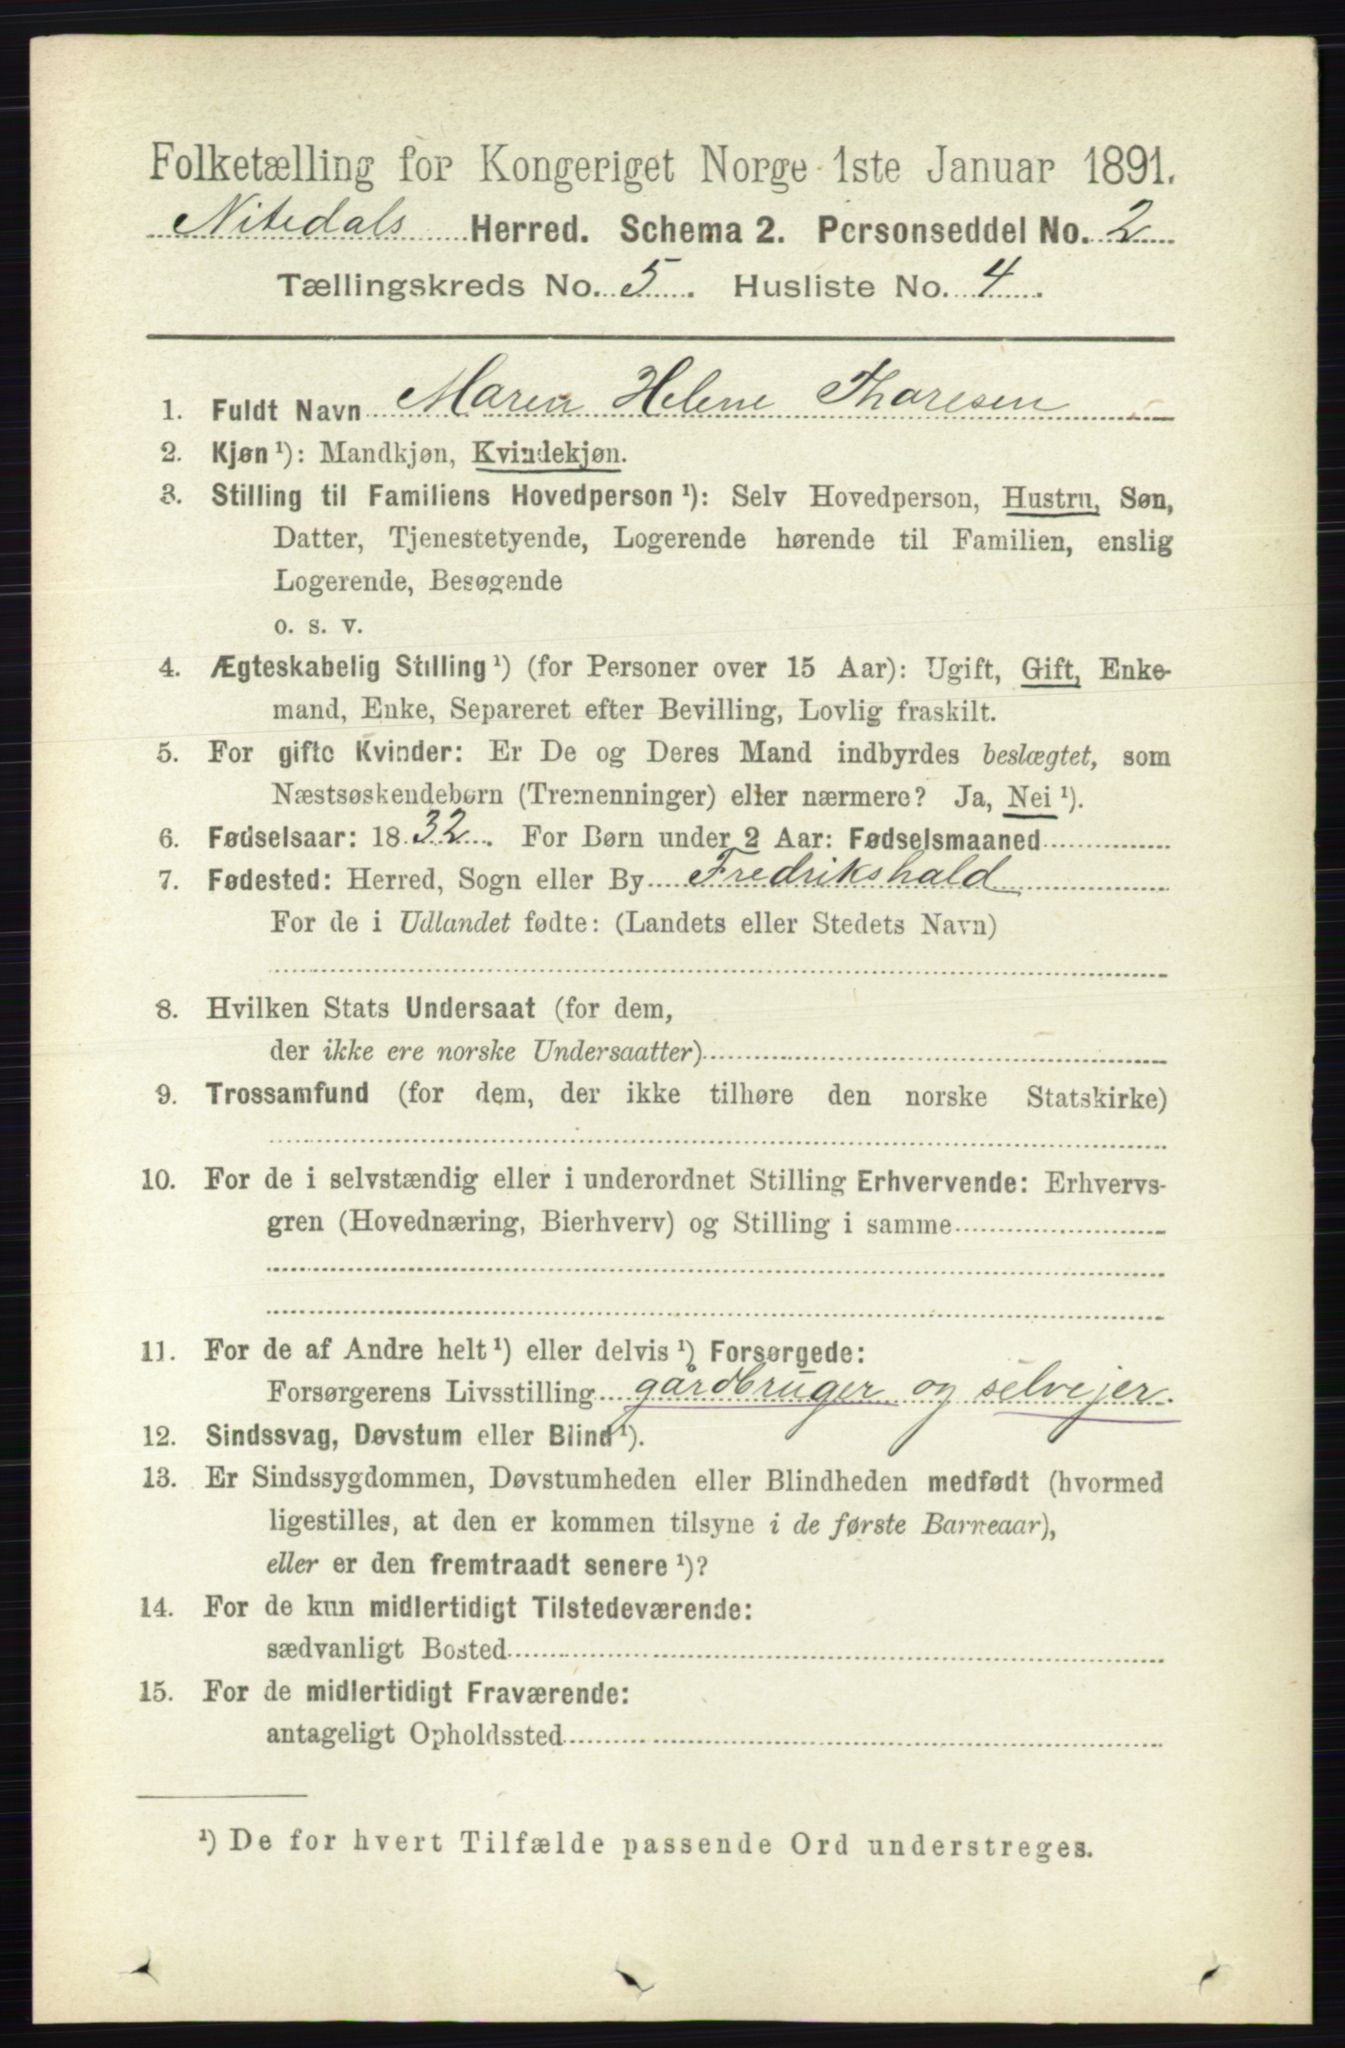 Folketælling for Kongeriget Norge 1ste Januar 1891.
Nitedals Herred. Schema 2. Personseddel No. 2
Tællingskreds No. 5. Husliste No. 4.
1. Fuldt Navn Maren Helene Thoresen
2. Kjøn¹): Mandkjøn, Kvindekjøn.
3. Stilling til Familiens Hovedperson¹): Selv Hovedperson, Hustru, Søn,
Datter, Tjenestetyende, Logerende hørende til Familien, enslig
Logerende, Besøgende
o. s. v.
4. Ægteskabelig Stilling¹) (for Personer over 15 Aar): Ugift, Gift, Enke-
mand, Enke, Separeret efter Bevilling, Lovlig fraskilt.
5. For gifte Kvinder: Er De og Deres Mand indbyrdes beslægtet, som
Næstsøskendebørn (Tremenninger) eller nærmere? Ja, Nei¹).
6. Fødselsaar: 1832. For Børn under 2 Aar: Fødselsmaaned
7. Fødested: Herred, Sogn eller By Fredrikshald
For de i Udlandet fødte: (Landets eller Stedets Navn)
8. Hvilken Stats Undersaat (for dem,
der ikke ere norske Undersaatter)
9. Trossamfund (for dem, der ikke tilhøre den norske Statskirke)
10. For de i selvstændig eller i underordnet Stilling Erhvervende: Erhvervs-
gren (Hovednæring, Bierhverv) og Stilling i samme
11. For de af Andre helt¹) eller delvis¹) Forsørgede:
Forsørgerens Livsstilling gårdbruger og selvejer.
12. Sindssvag, Døvstum eller Blind¹).
13. Er Sindssygdommen, Døvstumheden eller Blindheden medfødt (hvormed
ligestilles, at den er kommen tilsyne i de første Barneaar),
eller er den fremtraadt senere¹)?
14. For de kun midlertidigt Tilstedeværende:
sædvanligt Bosted
15. For de midlertidigt Fraværende:
antageligt Opholdssted
¹) De for hvert Tilfælde passende Ord understreges.